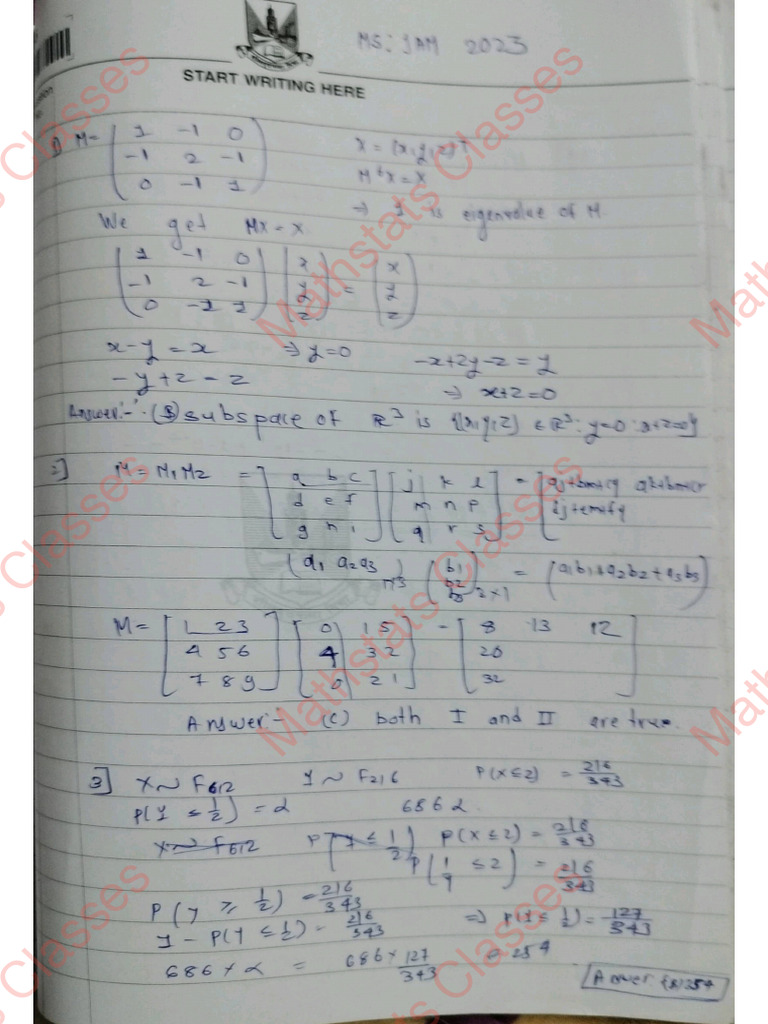 MS: JAM 2023
START WRITING HERE
1) M = ( 1 -1 0
-1 2 -1
0 -1 1 )
X = (x, y, z)ᵀ
M⁶X = X
→ 1 is eigenvalue of M.
We get MX = X
( 1 -1 0
-1 2 -1
0 -1 1 ) ( x y z ) = ( x y z )
x-y = x ⇒ y=0 -x+2y-z = y
-y+z = z ⇒ x+z=0
Answer:- subspace of ℝ³ is {(x,y,z) ∈ ℝ³: y=0: x+z=0}
2] M = M₁M₂ = [ a b c
d e f
g h i ] [ j k l
m n p
q r s ] = [ aj+bm+cq ak+bn+cr
(a₁ a₂ a₃) ( b₁ b₂ b₃ ) = (a₁b₁+a₂b₂+a₃b₃)
M = [ 1 2 3
4 5 6
7 8 9 ] [ 0 1 5
4 3 2
0 2 1 ] = [ 8 13 12
20
32 ]
Answer:- (C) both I and II are true.
3] X ~ F6,2 Y ~ F2,6 P(X≤2) = 216/343
P(Y ≤ 1/2) = α 686α.
X ~ F6,2 P[Y ≤ 1/2] P(X≤2) = 216/343
P[1/Y ≤ 2] = 216/343
P(Y ≥ 1/2) = 216/343
1 - P(Y ≤ 1/2) = 216/343 ⇒ P(Y ≤ 1/2) = 127/343
686 × α = 686 × 127/343 = 254
Answer 254
Mathstats Classes
Mathstats Classes
Mathstats Classes